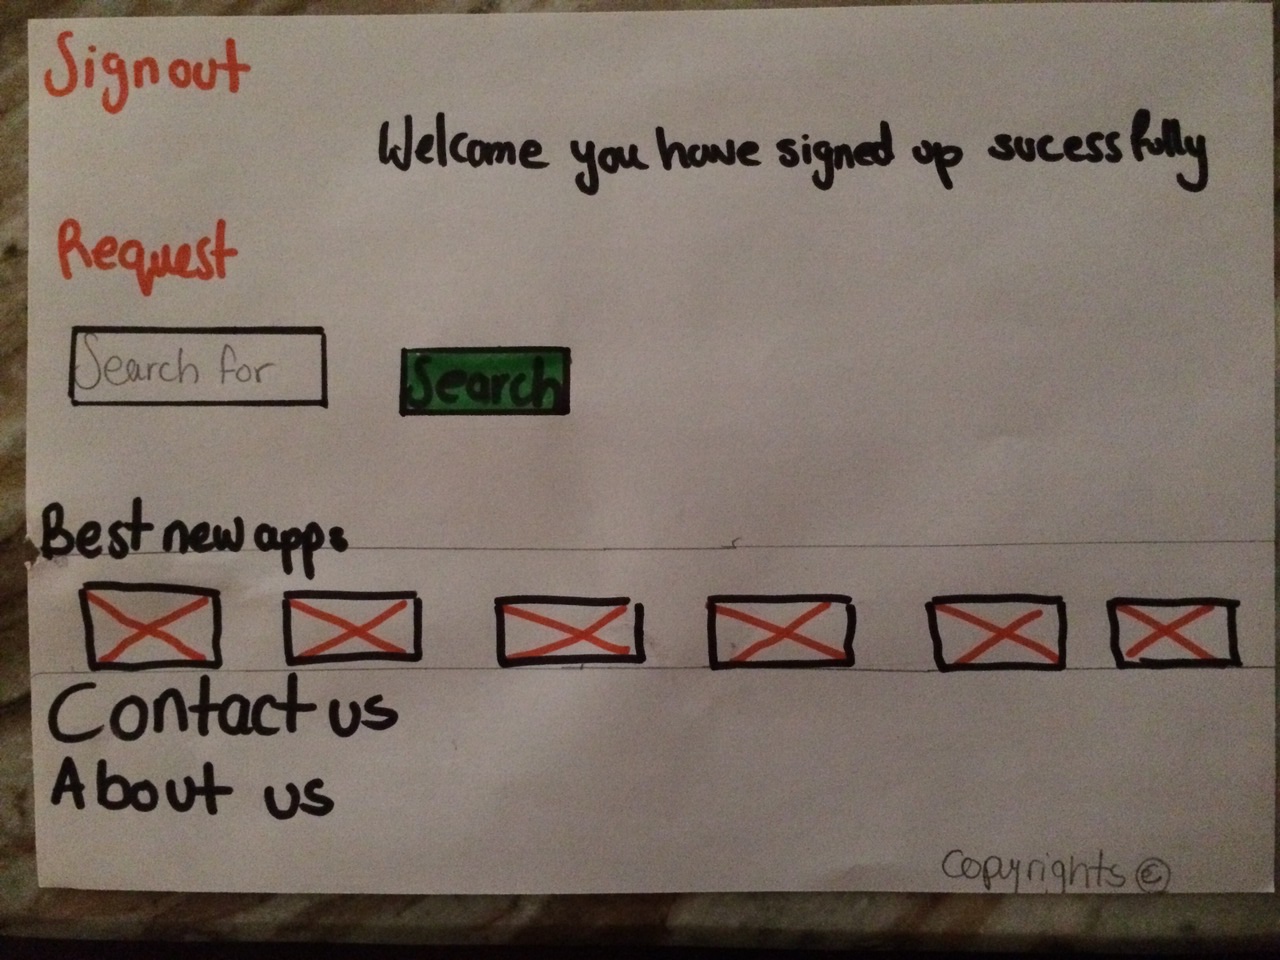 Sign out
Welcome you have signed up sucessfully
Request
Search for
Search
Best new apps
Contact us
About us
Copyrights ©